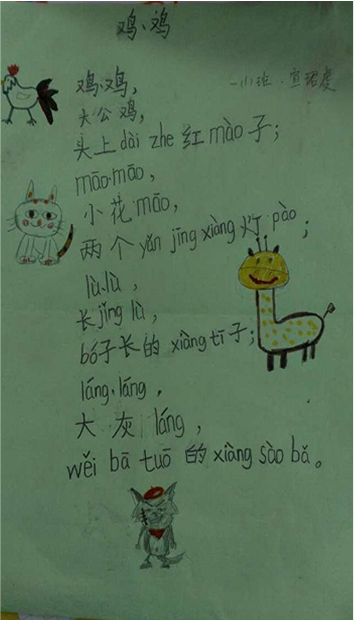 鸡、鸡
鸡、鸡，
一小班·宣
大公鸡，
头上dài zhe 红mào子；
māo·māo，
小花māo，
两个yǎn jīng xiàng 灯pào；
lù、lù，
长jǐng lù，
bó子长的 xiàng tī子；
láng、láng，
大灰láng，
wěi bā tuō 的xiàng sào bǎ。